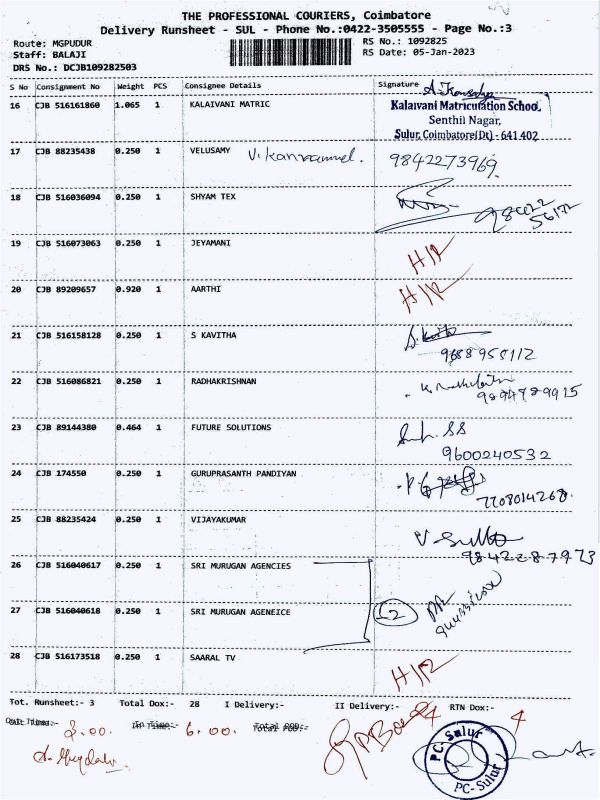 THE PROFESSIONAL COURIERS, Coimbatore
Delivery Runsheet - SUL - Phone No.:0422-3505555 - Page No.:3
Route: MGPUDUR RS No.: 1092825
Staff: BALAJI RS Date: 05-Jan-2023
DRS No.: DCJB109282503
S No Consignment No Weight PCS Consignee Details Signature
16 CJB 516161860 1.065 1 KALAIVANI MATRIC Kalaivani Matriculation School,
Senthil Nagar,
Sulur, Coimbatore(Dt) - 641 402
17 CJB 88235438 0.250 1 VELUSAMY 9842273969
18 CJB 516036094 0.250 1 SHYAM TEX
19 CJB 516073063 0.250 1 JEYAMANI H/R
20 CJB 89209657 0.920 1 AARTHI H/R
21 CJB 516158128 0.250 1 S KAVITHA
9688958112
22 CJB 516086821 0.250 1 RADHAKRISHNAN
23 CJB 89144380 0.464 1 FUTURE SOLUTIONS
9600240532
24 CJB 174550 0.250 1 GURUPRASANTH PANDIYAN
7708014268
25 CJB 88235424 0.250 1 VIJAYAKUMAR
9842287973
26 CJB 516040617 0.250 1 SRI MURUGAN AGENCIES
27 CJB 516040618 0.250 1 SRI MURUGAN AGENEICE 2
28 CJB 516173518 0.250 1 SAARAL TV H/R
Tot. Runsheet:- 3 Total Dox:- 28 I Delivery:- II Delivery:- RTN Dox:- 4
Out Time:- 8.00. In Time:- 6.00. Total POD:-
PC-Sulur
PC-Sulur